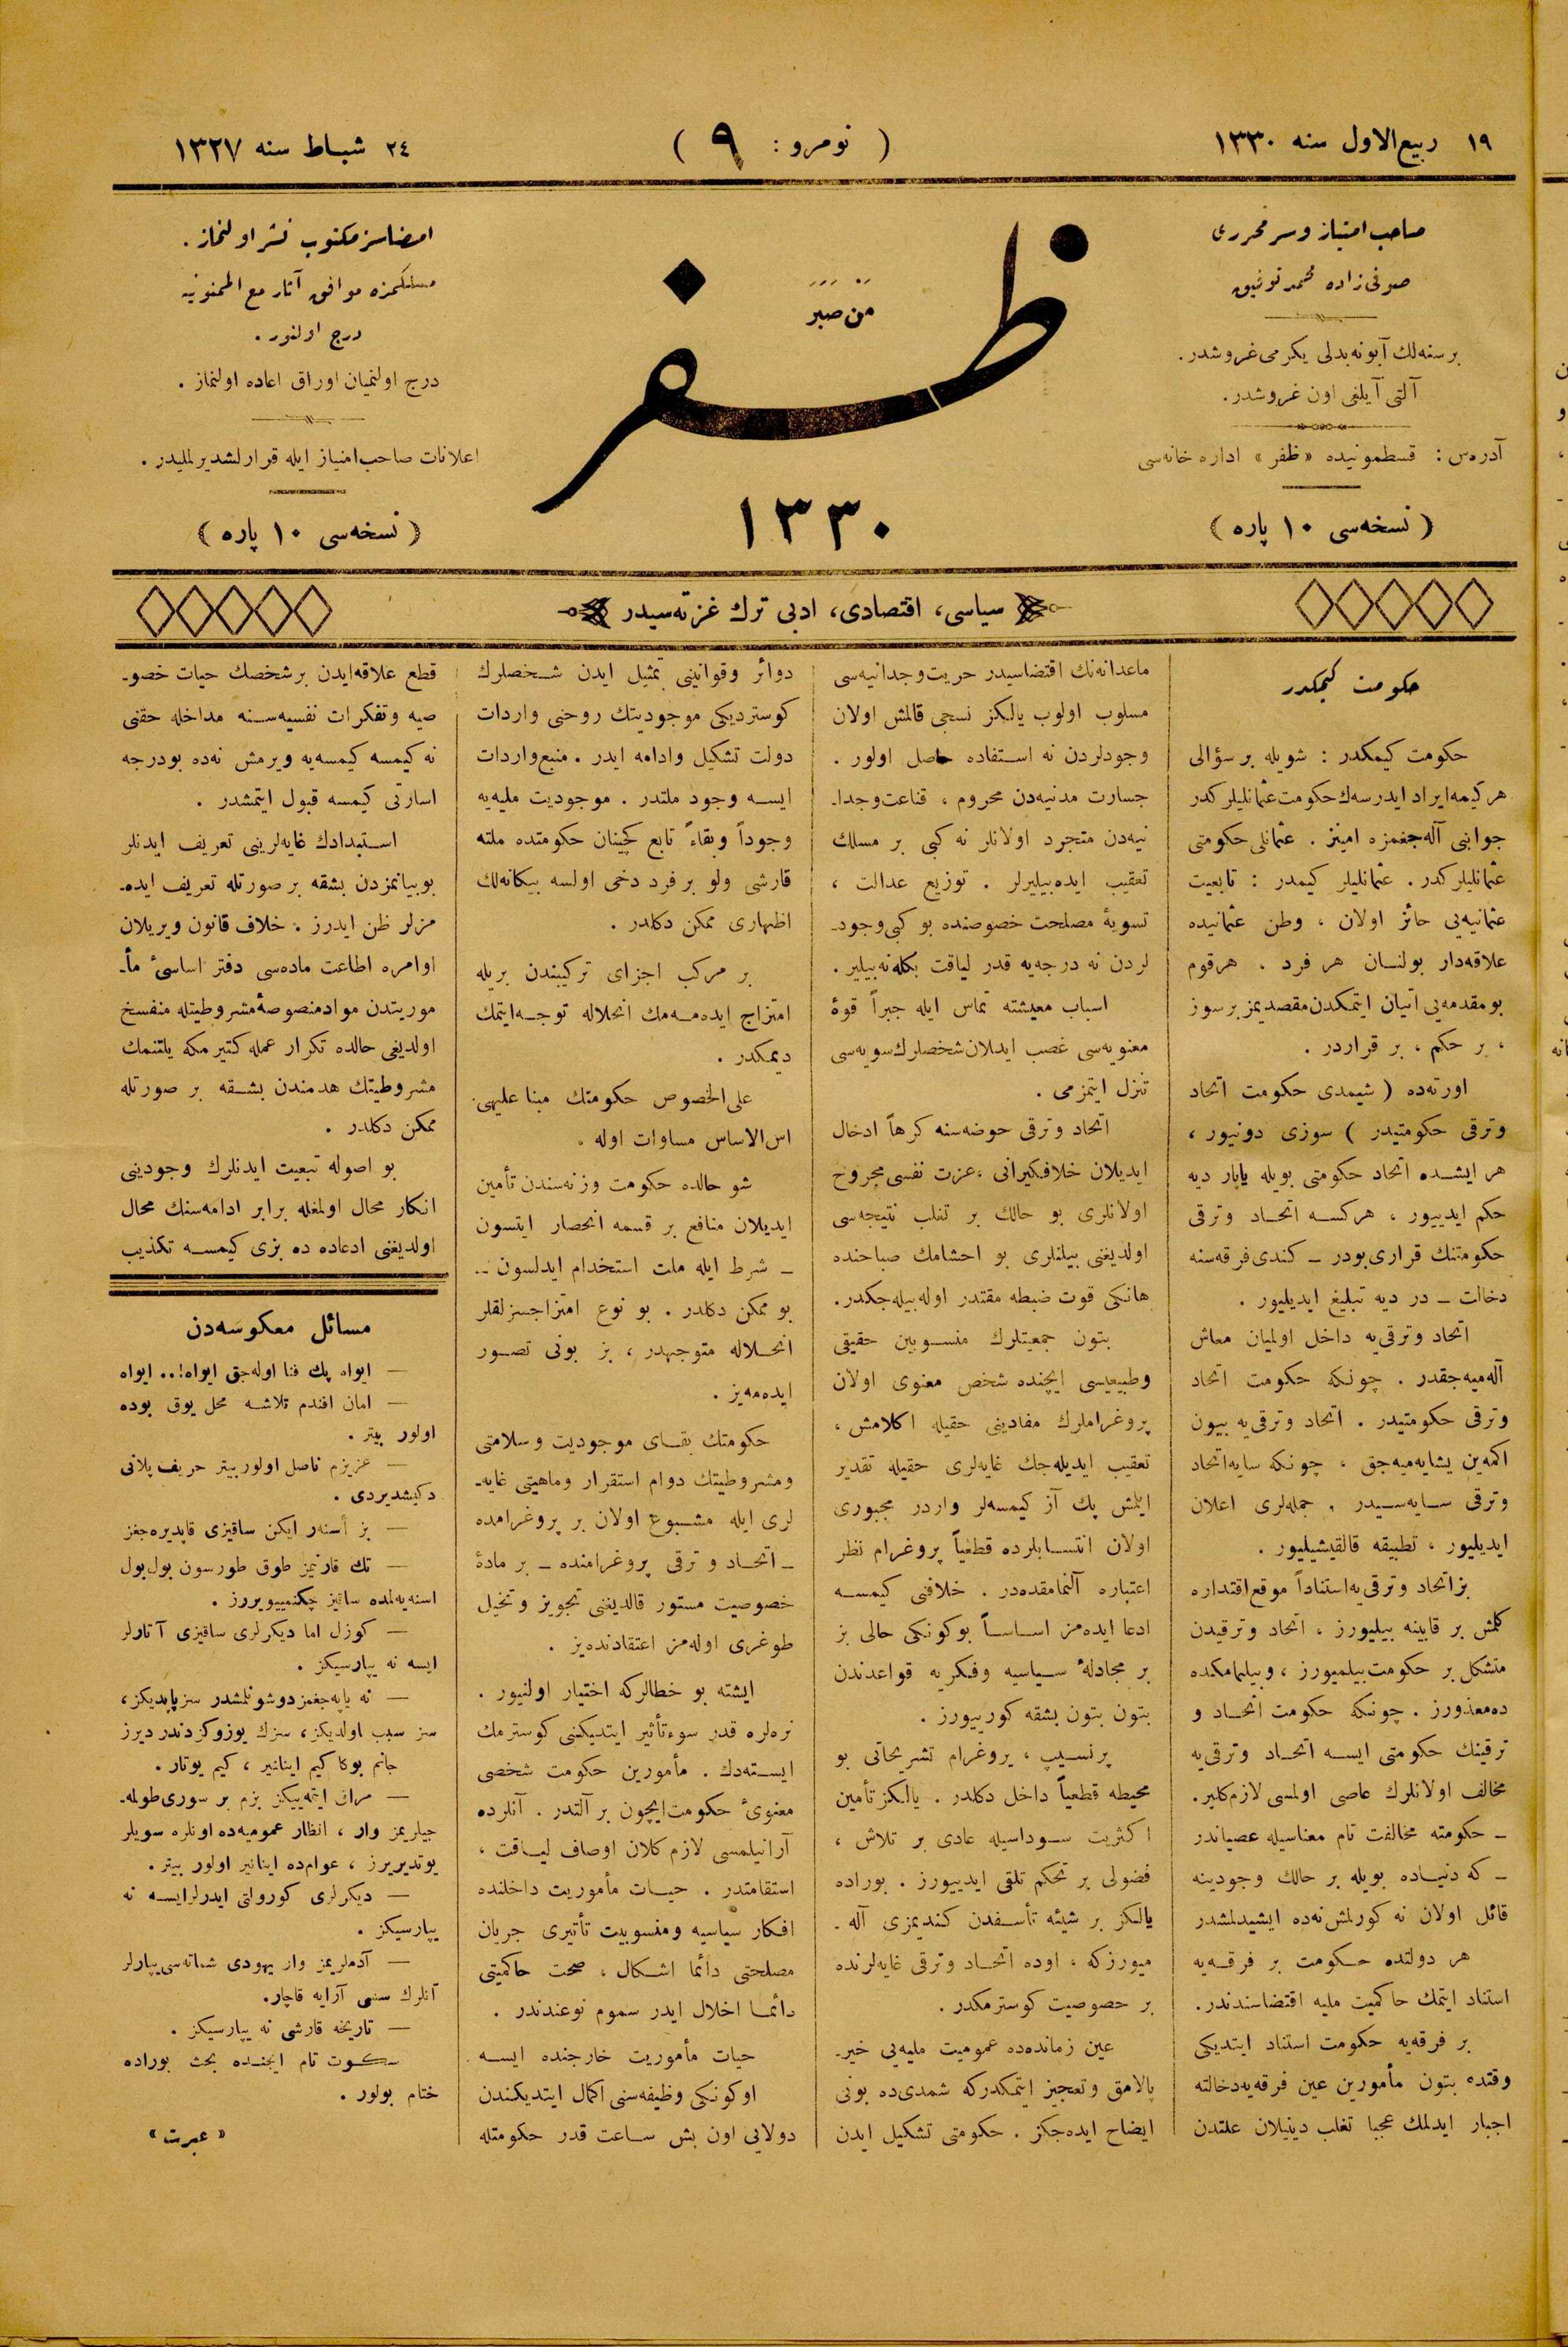 ١٩ ربيع‌الاول سنه ١٣٣٠
( نومرو : ٩ )
٢٤ شباط سنه ١٣٢٧
صاحب امتياز و سر محررى
صوفى زاده محمد توفيق
بر سنه‌لك آبونه بدلى يكرمى غروشدر .
آلتى آيلغى اون غروشدر .
آدره‌س : قسطمونيده « ظفر » اداره خانه‌سى
( نسخه‌سى ١٠ پاره )
مَنْ صَبَرَ
ظفر
١٣٣٠
امضاسز مكتوب نشر اولنماز .
مسلكمزه موافق آثار مع الممنونيه
درج اولنور .
درج اولنميان اوراق اعاده اولنماز .
اعلانات صاحب امتياز ايله قرارلشديرلمليدر .
( نسخه‌سى ١٠ پاره )
سياسى ، اقتصادى ، ادبى ترك غزته‌سيدر
حكومت كيمكدر
حكومت كيمكدر : شويله بر سؤالى
هر كيمه ايراد ايدرسه‌ك حكومت عثمانليلركدر
جوابنى آله‌جغمزه امينز . عثمانلى حكومتى
عثمانليلركدر . عثمانليلر كيمدر : تابعيت
عثمانيه‌يى حائز اولان ، وطن عثمانيده
علاقه‌دار بولنان هر فرد . هر قوم
بو مقدمه‌يى اتيان ايتمكدن مقصديمز بر سوز
، بر حكم ، بر قراردر .
اورته‌ده ( شيمدى حكومت اتحاد
وترقى حكومتيدر ) سوزى دونيور ،
هر ايشده اتحاد حكومتى بويله ياپار ديه
حكم ايدييور ، هركسه اتحاد وترقى
حكومتنك قرارى بودر ـ كندى فرقه‌سنه
دخالت ـ در ديه تبليغ ايديليور .
اتحاد وترقى‌يه داخل اولميان معاش
آله‌ميه‌جقدر . چونكه حكومت اتحاد
وترقى حكومتيدر . اتحاد وترقى‌يه بيون
اكمه‌ين يشايه‌ميه‌جق ، چونكه سايه اتحاد
وترقى سايه‌سيدر . جمله‌لرى اعلان
ايديليور ، تطبيقه قالقيشيليور .
بز اتحاد وترقى‌يه استناداً موقع اقتداره
كلمش بر قابينه بيليورز ، اتحاد وترقيدن
متشكل بر حكومت بيلميورز ، وبيلمامكده
ده معذورز . چونكه حكومت اتحاد و
ترقينك حكومتى ايسه اتحاد وترقى‌يه
مخالف اولانلرك عاصى اولمسى لازم‌كلير .
ـ حكومته مخالفت تام معناسيله عصياندر
ـ كه دنياده بويله بر حالك وجودينه
قائل اولان نه كورلمش نه‌ده ايشيدلمشدر
هر دولتده حكومت بر فرقه‌يه
استناد ايتمك حاكميت مليه اقتضاسندندر .
بر فرقه‌يه حكومت استناد ايتديكى
وقتده بتون مأمورين عين فرقه‌يه دخالته
اجبار ايدلمك عجبا تغلب دينيلان علتدن
ماعدانه‌نك اقتضاسيدر حريت وجدانيه‌سى
مسلوب اولوب يالكز نسجى قالمش اولان
وجودلردن نه استفاده حاصل اولور .
جسارت مدنيه‌دن محروم ، قناعت وجدا‌ـ
نيه‌دن متجرد اولانلر نه كبى بر مسلك
تعقيب ايده‌بيليرلر . توزيع عدالت ،
تسويهٔ مصلحت خصوصنده بو كبى وجود‌ـ
لردن نه درجه‌يه قدر لياقت بكله‌نه‌بيلير .
اسباب معيشته تماس ايله جبراً قوهٔ
معنويه‌سى غصب ايدلان شخصلرك سويه‌سى
تنزل ايتمزمى .
اتحاد وترقى حوضه‌سنه كرهاً ادخال
ايديلان خلافكيرانى ، عزت نفسى مجروح
اولانلرى بو حالك بر تغلب نتيجه‌سى
اولديغنى بيلنلرى بو احشامك صباحنده
هانكى قوت ضبطه مقتدر اوله‌بيله‌جكدر .
بتون جمعيتلرك منسوبين حقيقى
وطبيعيسى ايچنده شخص معنوى اولان
پروغراملرك مفادينى حقيله اكلامش ،
تعقيب ايديله‌جك غايه‌لرى حقيله تقدير
ايتمش پك آز كيمسه‌لر واردر مجبورى
اولان انتسابلرده قطعياً پروغرام نظر
اعتباره آلنمامقده‌در . خلافنى كيمسه
ادعا ايده‌مز اساساً بوكونكى حالى بز
بر مجادلهٔ سياسيه وفكريه قواعدندن
بتون بتون بشقه كورييورز .
پرنسيپ ، پروغرام تشريحاتى بو
محيطه قطعياً داخل دكلدر . يالكز تأمين
اكثريت سوداسيله عادى بر تلاش ،
فضولى بر تحكم تلقى ايدييورز . بوراده
يالكز بر شيئه تأسفدن كنديمزى آله ـ
ميورزكه ، اوده اتحاد وترقى غايه‌لرنده
بر خصوصيت كوسترمكدر .
عين زمانده‌ده عموميت مليه‌يى خير‌ـ
پالامق وتعجيز ايتمكدركه شمدى‌ده بونى
ايضاح ايده‌جكز . حكومتى تشكيل ايدن
دوائر وقوانينى تمثيل ايدن شخصلرك
كوسترديكى موجوديتك روحنى واردات
دولت تشكيل وادامه ايدر . منبع واردات
ايسه وجود ملتدر . موجوديت مليه‌يه
وجوداً وبقاءً تابع كچينان حكومتده ملته
قارشى ولو بر فرد دخى اولسه بيكانه‌لك
اظهارى ممكن دكلدر .
بر مركب اجزاى تركيبندن بريله
امتزاج ايده‌مه‌مك انحلاله توجه‌ايتمك
ديمكدر .
على‌الخصوص حكومتك مبنا عليهى
اس الاساس مساوات اوله .
شو حالده حكومت وزنه‌سندن تأمين
ايديلان منافع بر قسمه انحصار ايتسون
ـ شرط ايله ملت استخدام ايدلسون ـ
بو ممكن دكلدر . بو نوع امتزاجسزلقلر
انحلاله متوجهدر ، بز بونى تصور
ايده‌مه‌يز .
حكومتك بقاى موجوديت وسلامتى
ومشروطيتك دوام استقرار وماهيتى غايه‌ـ
لرى ايله مشبوع اولان بر پروغرامده
ـ اتحاد و ترقى پروغرامنده ـ بر مادهٔ
خصوصيت مستور قالديغنى تجويز وتخيل
طوغرى اوله‌مز اعتقادنده‌يز .
ايشته بو خطالركه اختيار اولنيور .
نره‌لره قدر سوءتأثير ايتديكنى كوسترمك
ايسته‌دك . مأمورين حكومت شخصى
معنوئ حكومت‌ايچون بر آلتدر . آنلرده
آرانيلمسى لازم كلان اوصاف لياقت ،
استقامتدر . حيات مأموريت داخلنده
افكار سياسيه ومنسوبيت تأثيرى جريان
مصلحتى دائما اشكال ، صحت حاكميتى
دائما اخلال ايدر سموم نوعندندر .
حيات مأموريت خارجنده ايسه
اوكونكى وظيفه‌سنى اكمال ايتديكندن
دولايى اون بش ساعت قدر حكومتله
قطع علاقه‌ايدن بر شخصك حيات خصو‌ـ
صيه وتفكرات نفسيه‌سنه مداخله حقنى
نه كيمسه كيمسه‌يه ويرمش نه‌ده بودرجه
اسارتى كيمسه قبول ايتمشدر .
استبدادك غايه‌لرينى تعريف ايدنلر
بو بياتمزدن بشقه بر صورتله تعريف ايده‌ـ
مزلر ظن ايدرز . خلاف قانون ويريلان
اوامره اطاعت ماده‌سى دفتر اساسئ مأ‌ـ
موريتدن مواد منصوصهٔ مشروطيتله منفسخ
اولديغى حالده تكرار عمله كتيرمكه يلتنمك
مشروطيتك هدمندن بشقه بر صورتله
ممكن دكلدر .
بو اصوله تبعيت ايدنلرك وجودينى
انكار محال اولمغله برابر ادامه‌سنك محال
اولديغنى ادعاده ده بزى كيمسه تكذيب
مسائل معكوسه‌دن
— ايواه پك فنا اوله‌جق ايواه! .. ايواه
— امان افندم تلاشه محل يوق بوده
اولور بيتر .
— عزيزم ناصل اولور بيتر حريف پلانى
دكيشديردى .
— بز أسنه‌ر ايكن ساقيزى قاپديره‌جغز
— تك قارنيمز طوق طورسون بول بول
اسنه‌يه‌لمده ساقيز چكنمييويررز .
— كوزل اما ديكرلرى ساقيزى آتارلر
ايسه نه يپارسيكز .
— نه ياپه‌جغمز دوشونلمشدر سز ياپديكز ،
سز سبب اولديكز ، سزك يوزوكزدندر ديرز
جانم بوكا كيم اينانير ، كيم يوتار .
— مراق ايتمه‌ييكز بزم بر سورى طولمه‌ـ
جيلريمز وار ، انظار عموميه‌ده اونلره سويلر
يوتديريرز ، عوام‌ده اينانير اولور بيتر .
— ديكرلرى كورولتى ايدرلرايسه نه
يپارسيكز .
— آدملريمز وار يهودى شماته‌سى يپارلر
آنلرك سسى آرايه قاچار .
— تاريخه قارشى نه يپارسيكز .
سكوت تام ايچنده بحث بوراده
ختام بولور .
« عبرت »